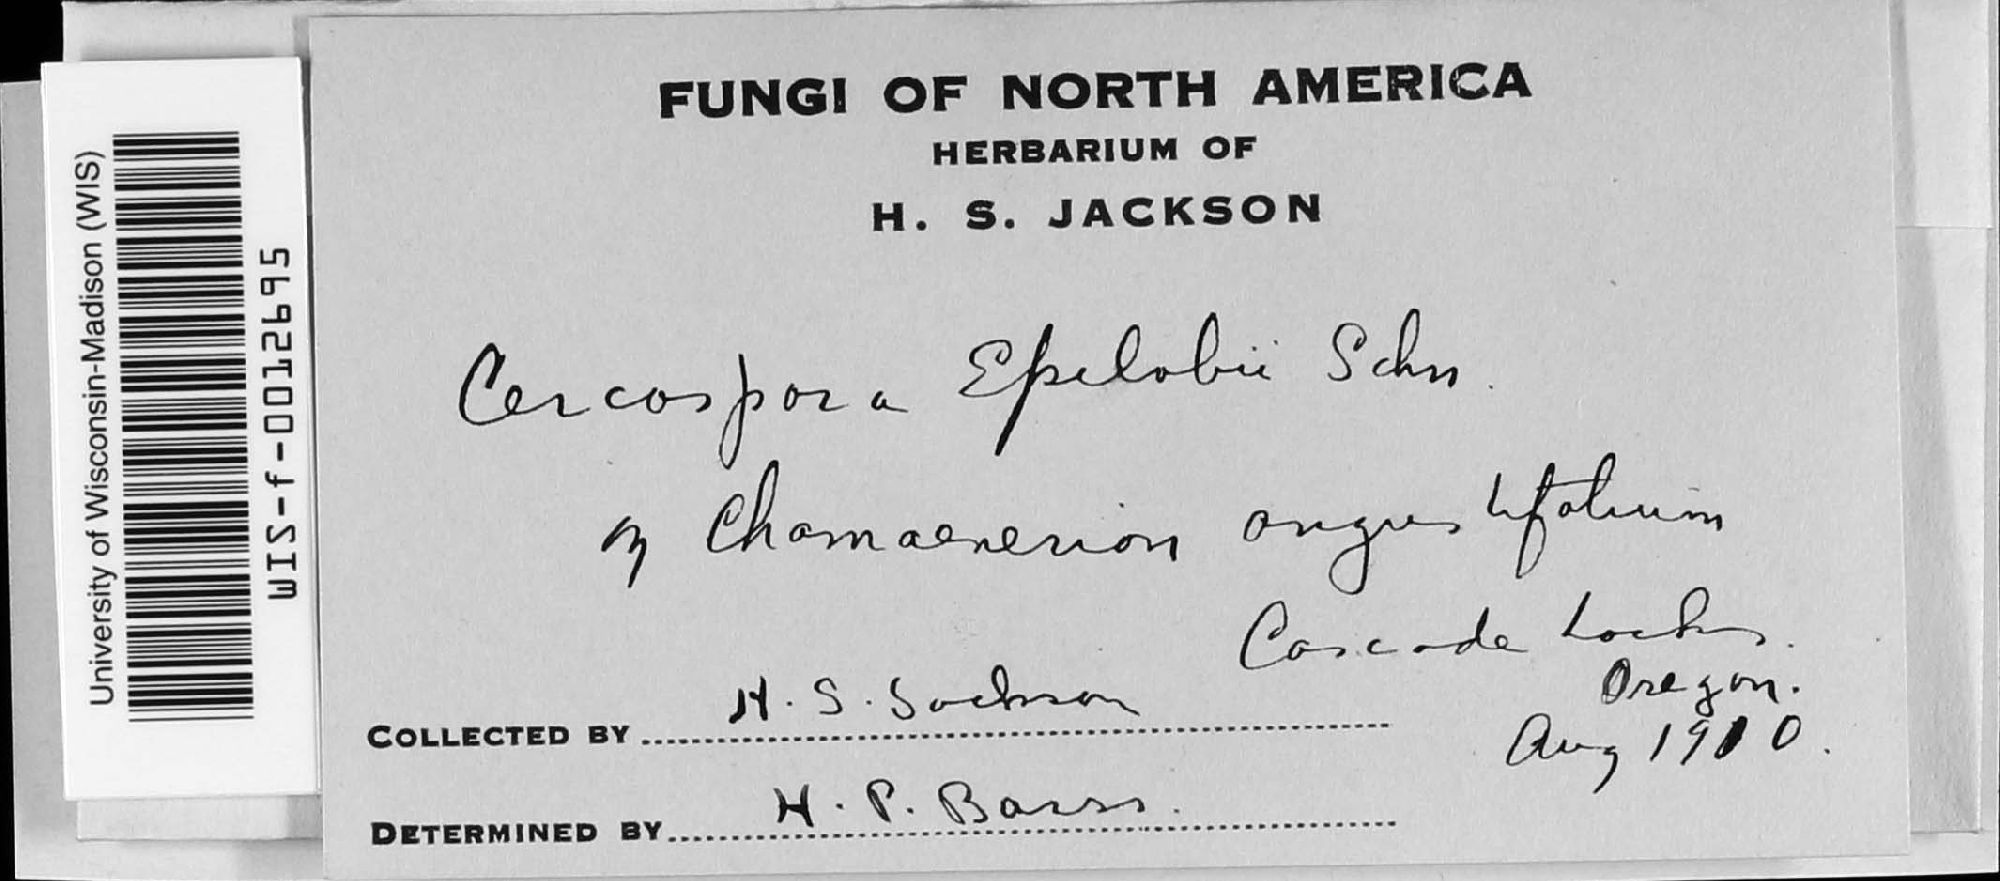 University of Wisconsin-Madison (WIS)
WIS-f-0012695
FUNGI OF NORTH AMERICA
HERBARIUM OF
H. S. JACKSON
Cercospora Epilobii Schn.
on Chamaenerion angustifolium
Cascade Locks.
Oregon.
Aug 1910.
COLLECTED BY H. S. Jackson
DETERMINED BY H. P. Barss.